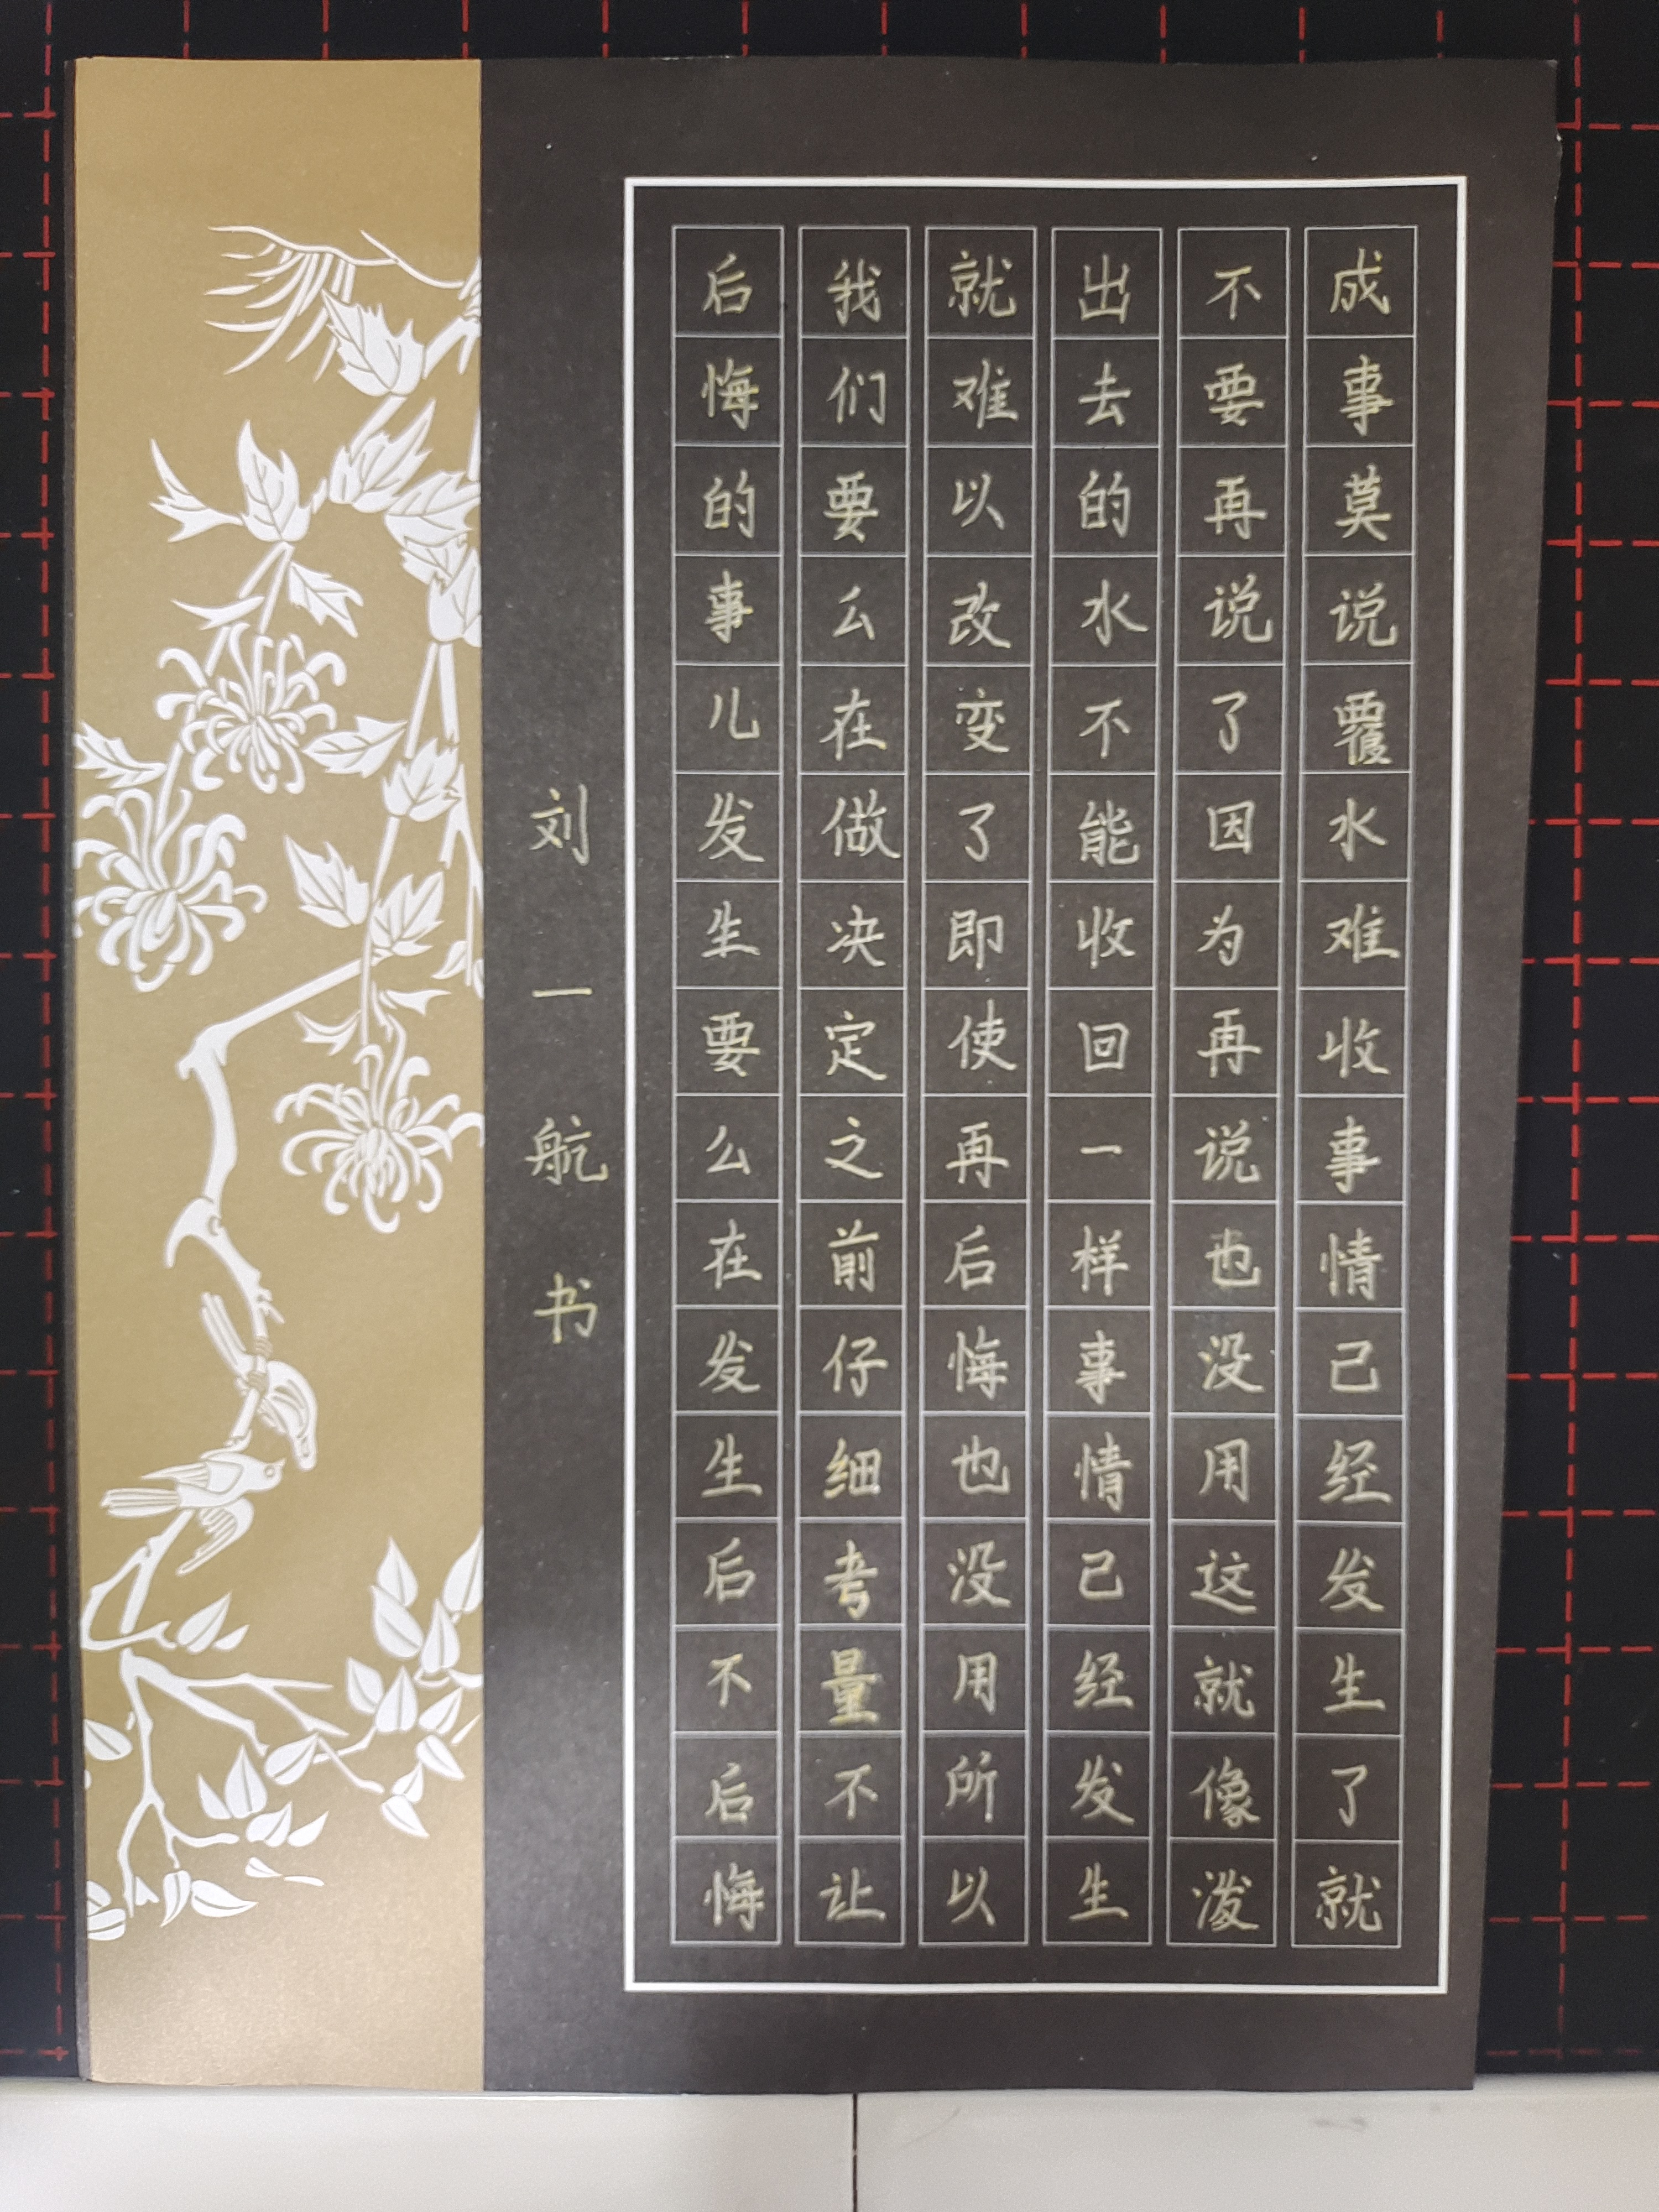 成事莫说覆水难收事情已经发生了就
不要再说了因为再说也没用这就像泼
出去的水不能收回一样事情已经发生
就难以改变了即使再后悔也没用所以
我们要么在做决定之前仔细考量不让
后悔的事儿发生要么在发生后不后悔
刘一航书